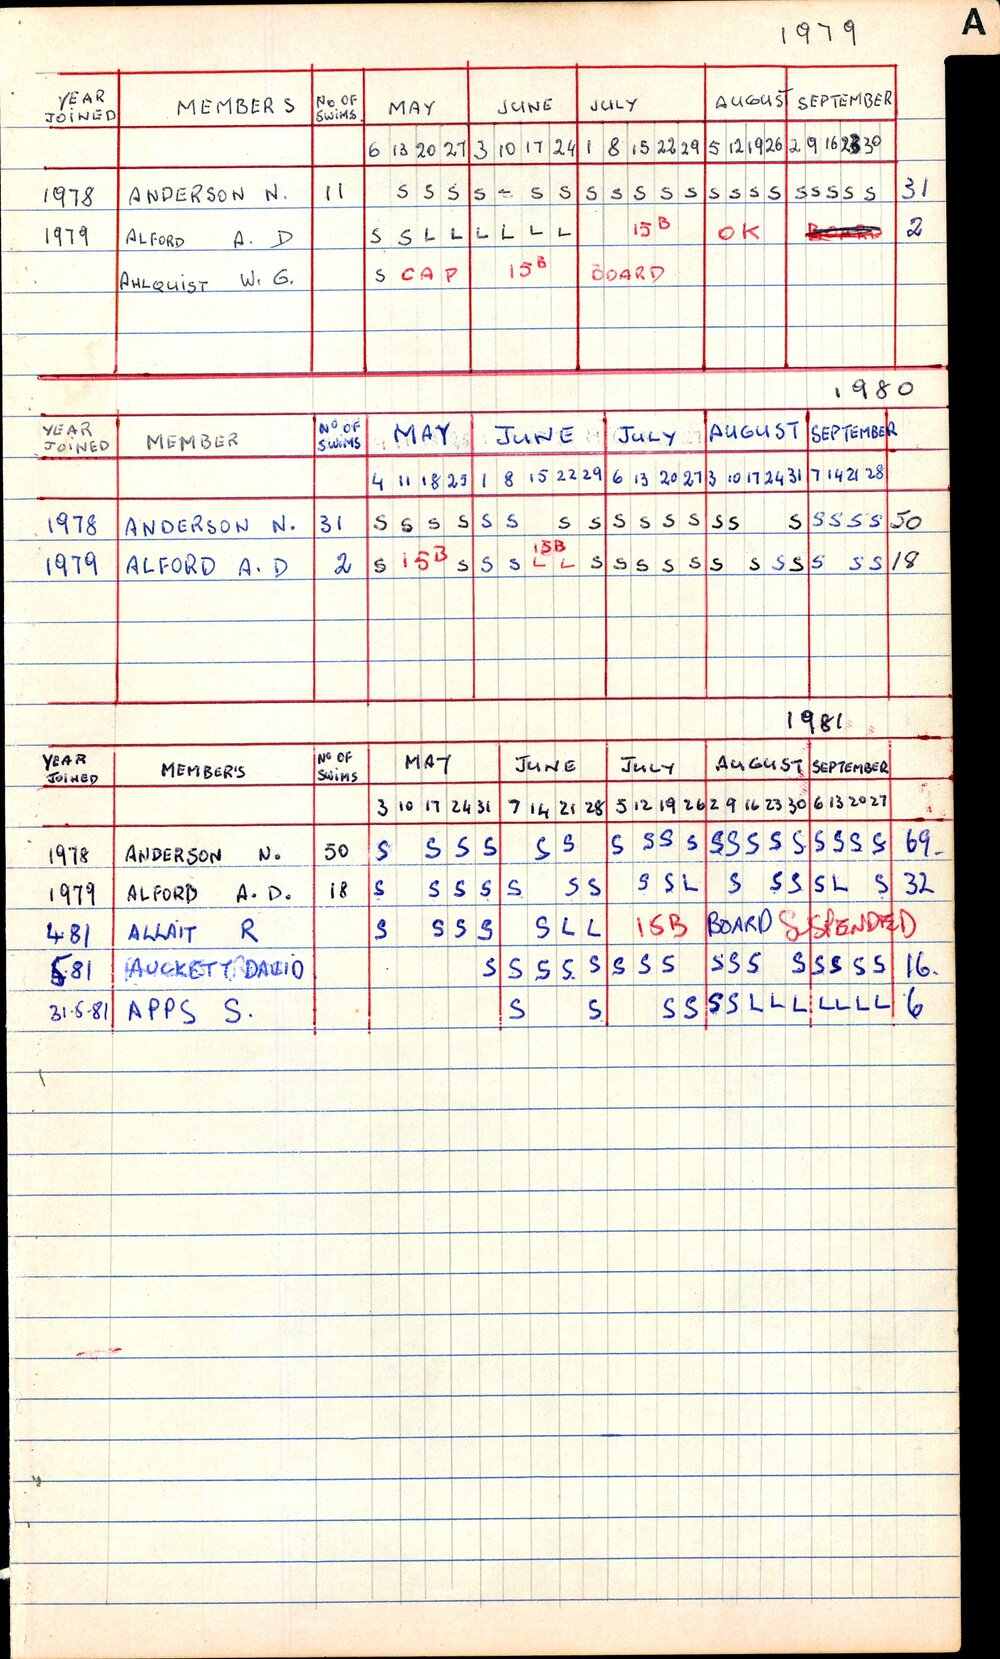 A
1979
YEAR JOINED MEMBERS No OF SWIMS MAY JUNE JULY AUGUST SEPTEMBER
6 13 20 27 3 10 17 24 1 8 15 22 29 5 12 19 26 2 9 16 23 30
1978 ANDERSON N. 11 S S S S - S S S S S S S S S S S S S S S S 31
1979 ALFORD A. D S S L L L L L L 15B OK 2
AHLQUIST W. G. S CAP 15B BOARD
1980
YEAR JOINED MEMBER No OF SWIMS MAY JUNE JULY AUGUST SEPTEMBER
4 11 18 25 1 8 15 22 29 6 13 20 27 3 10 17 24 31 7 14 21 28
1978 ANDERSON N. 31 S S S S S S S S S S S S S S S S S S S 50
1979 ALFORD A. D 2 S 15B S S S 15B L L S S S S S S S S S S S S 18
1981
YEAR JOINED MEMBER'S No OF SWIMS MAY JUNE JULY AUGUST SEPTEMBER
3 10 17 24 31 7 14 21 28 5 12 19 26 2 9 16 23 30 6 13 20 27
1978 ANDERSON N. 50 S S S S S S S S S S S S S S S S S S S 69.
1979 ALFORD A. D. 18 S S S S S S S S S L S S S S L S 32
4 81 ALLAIT R S S S S S L L 15B BOARD SUSPENDED
5 81 AUCKETT DAVID S S S S S S S S S S S S S S S S 16.
31·5·81 APPS S. S S S S S S L L L L L L L 6